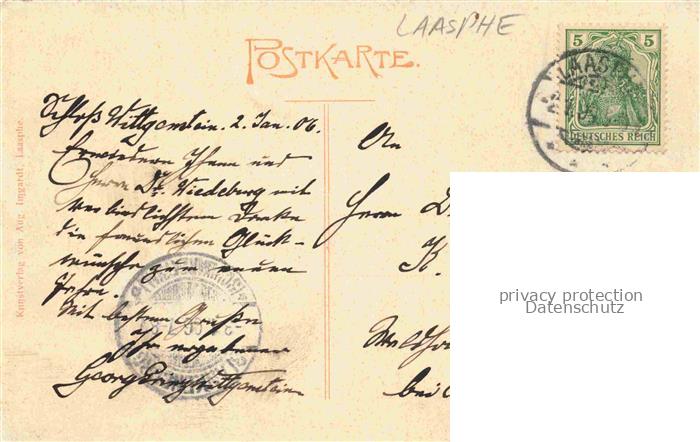 LAASPHE
POSTKARTE.
5 5
LAASPHE
DEUTSCHES REICH
Kunstverlag von Aug. Imgardt, Laasphe.
Schloß Wittgenstein. 2. Jan. 06.
Erwiedern Ihnen und
Herrn Dr. Wiedeburg mit
verbindlichstem Danke
die freundlichen Glück-
wünsche zum neuen
Jahre.
Mit besten Grüßen
Ihr ergebener
Georg Prinz Wittgenstein
An
Herrn D
K.
bei
privacy protection
Datenschutz